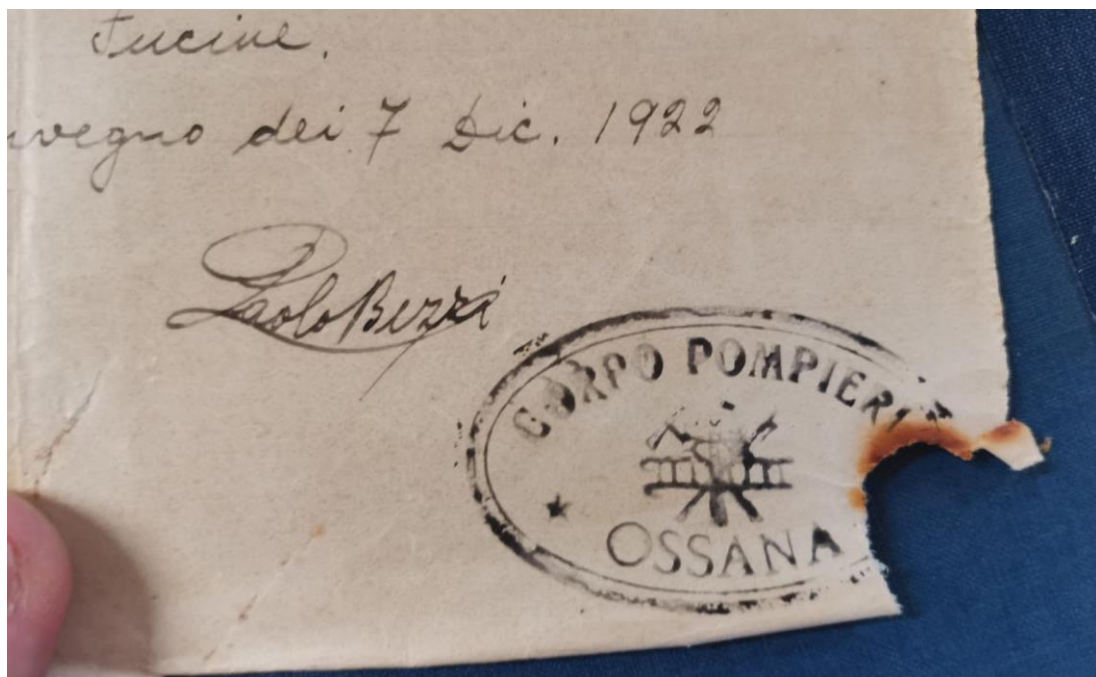 Fucine.
nvegno dei 7 Dic. 1922
Paolo Bezzi
CORPO POMPIERI
OSSANA